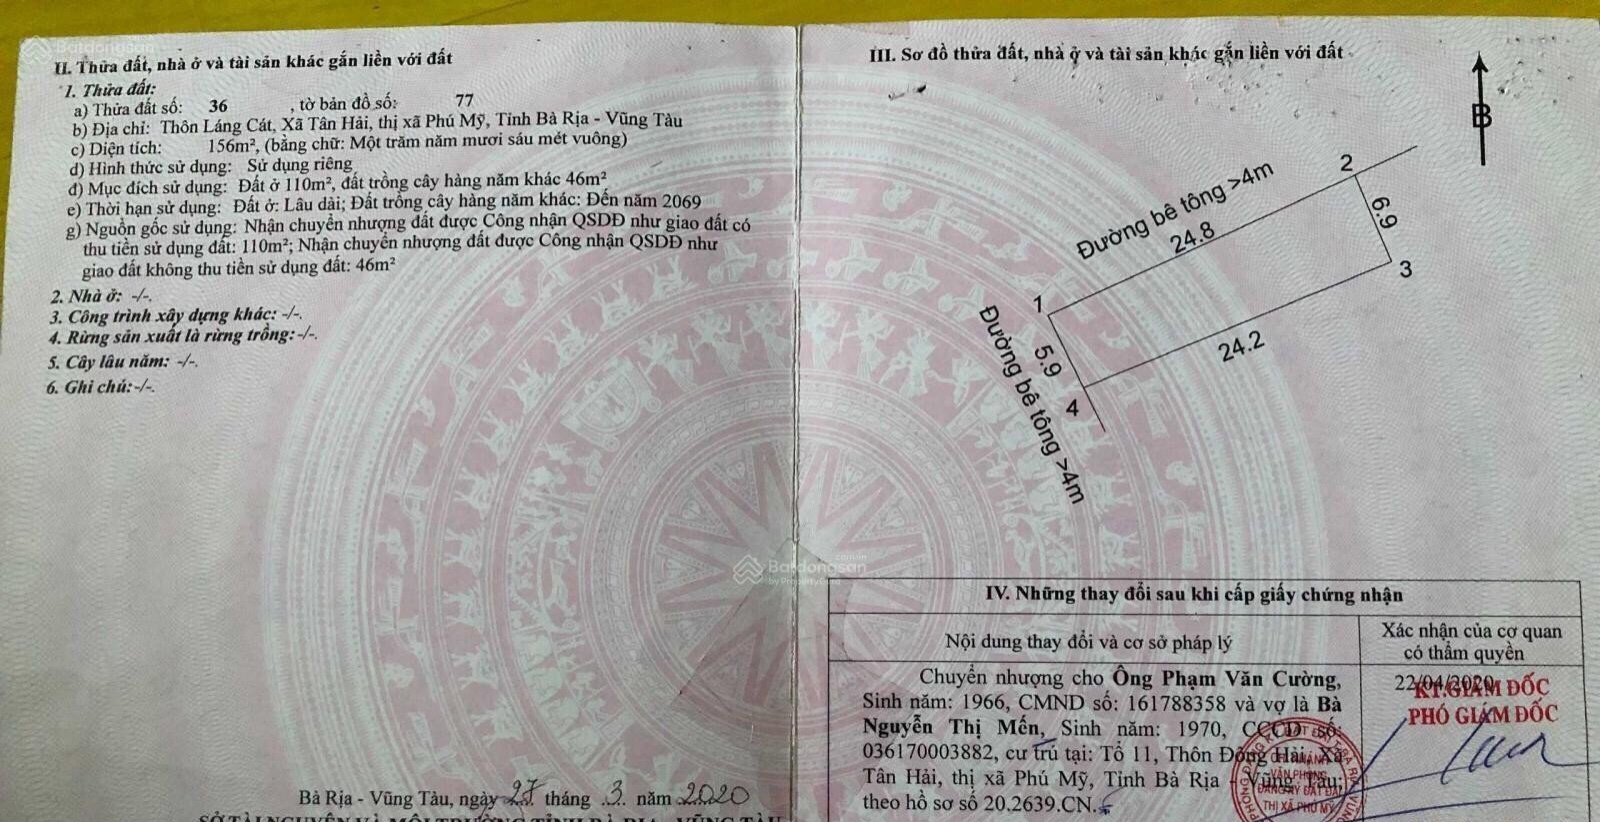 II. Thửa đất, nhà ở và tài sản khác gắn liền với đất
1. Thửa đất:
a) Thửa đất số: 36 , tờ bản đồ số: 77
b) Địa chỉ: Thôn Láng Cát, Xã Tân Hải, thị xã Phú Mỹ, Tỉnh Bà Rịa - Vũng Tàu
c) Diện tích: 156m², (bằng chữ: Một trăm năm mươi sáu mét vuông)
d) Hình thức sử dụng: Sử dụng riêng
đ) Mục đích sử dụng: Đất ở 110m², đất trồng cây hàng năm khác 46m²
e) Thời hạn sử dụng: Đất ở: Lâu dài; Đất trồng cây hàng năm khác: Đến năm 2069
g) Nguồn gốc sử dụng: Nhận chuyển nhượng đất được Công nhận QSDĐ như giao đất có
thu tiền sử dụng đất: 110m²; Nhận chuyển nhượng đất được Công nhận QSDĐ như
giao đất không thu tiền sử dụng đất: 46m²
2. Nhà ở: -/-.
3. Công trình xây dựng khác: -/-.
4. Rừng sản xuất là rừng trồng:-/-.
5. Cây lâu năm: -/-.
6. Ghi chú:-/-.
Bà Rịa - Vũng Tàu, ngày 27 tháng 3 năm 2020
SỞ TÀI NGUYÊN VÀ MÔI TRƯỜNG TỈNH BÀ RỊA - VŨNG TÀU
III. Sơ đồ thửa đất, nhà ở và tài sản khác gắn liền với đất
B
Đường bê tông >4m
24.8
2
6.9
3
1
5.9
24.2
4
Đường bê tông >4m
Batdongsan
by PropertyGuru
IV. Những thay đổi sau khi cấp giấy chứng nhận
Nội dung thay đổi và cơ sở pháp lý
Xác nhận của cơ quan
có thẩm quyền
Chuyển nhượng cho Ông Phạm Văn Cường,
Sinh năm: 1966, CMND số: 161788358 và vợ là Bà
Nguyễn Thị Mến, Sinh năm: 1970, CCCD số:
036170003882, cư trú tại: Tổ 11, Thôn Đông Hải, Xã
Tân Hải, thị xã Phú Mỹ, Tỉnh Bà Rịa - Vũng Tàu;
theo hồ sơ số 20.2639.CN.
22/04/2020
KT.GIÁM ĐỐC
PHÓ GIÁM ĐỐC
CHI NHÁNH
VĂN PHÒNG
ĐĂNG KÝ ĐẤT ĐAI
THỊ XÃ PHÚ MỸ